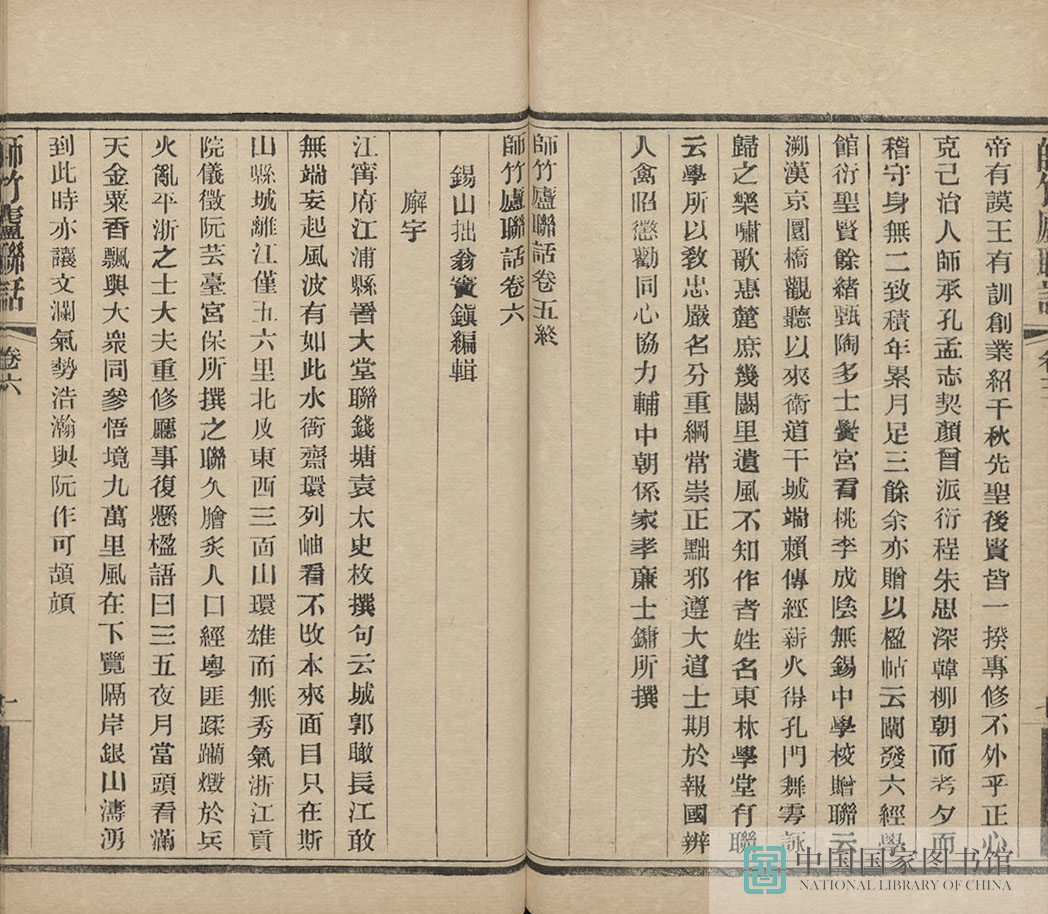 帝有謨王有訓創業紹千秋先聖後賢皆一揆專修不外乎正心
克己治人師承孔孟志契顏曾派衍程朱思深韓柳朝而考夕而
稽守身無二致積年累月足三餘余亦贈以楹帖云闡發六經學
館衍聖賢餘緒甄陶多士黌宮看桃李成陰無錫中學校贈聯云
溯漢京圜橋觀聽以來衛道干城端賴傳經薪火得孔門舞雩詠
歸之樂嘯歌惠麓庶幾闕里遺風不知作者姓名東林學堂有聯
云學所以敎忠嚴名分重綱常崇正黜邪遵大道士期於報國辨
人禽昭懲勸同心協力輔中朝係家孝廉士鏞所撰
師竹廬聯話卷五終
師竹廬聯話卷六
錫山拙翁竇鎭編輯
廨宇
江寧府江浦縣署大堂聯錢塘袁太史枚撰句云城郭瞰長江敢
無端妄起風波有如此水衙齋環列岫看不改本來面目只在斯
山縣城離江僅五六里北及東西三面山環雄而無秀氣浙江貢
院儀徵阮芸臺宮保所撰之聯久膾炙人口經粵匪蹂躪燬於兵
火亂平浙之士大夫重修廳事復懸楹語曰三五夜月當頭看滿
天金粟香飄與大衆同參悟境九萬里風在下覽隔岸銀山濤湧
到此時亦讓文瀾氣勢浩瀚與阮作可頡頏
師竹廬聯話
卷六
一
中国国家图书馆
NATIONAL LIBRARY OF CHINA